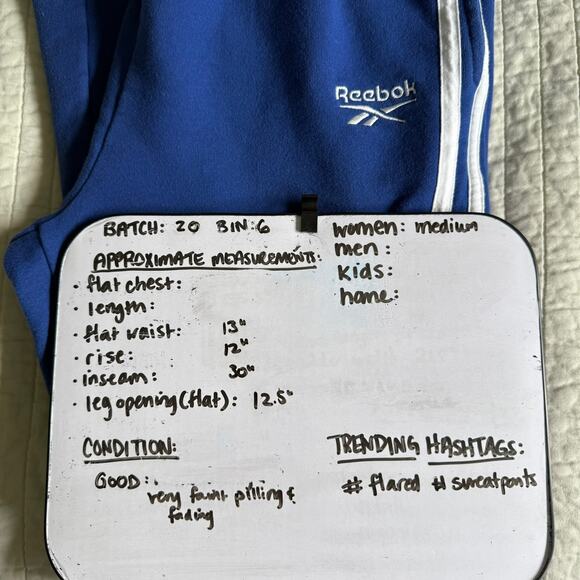 Reebok
BATCH: 20 BIN: 6
women: medium
men:
kids:
home:
APPROXIMATE MEASUREMENTS:
• flat chest:
• length:
• flat waist: 13"
• rise: 12"
• inseam: 30"
• leg opening (flat): 12.5"
CONDITION:
GOOD: very faint pilling &
fading
TRENDING HASHTAGS:
# flared # sweatpants